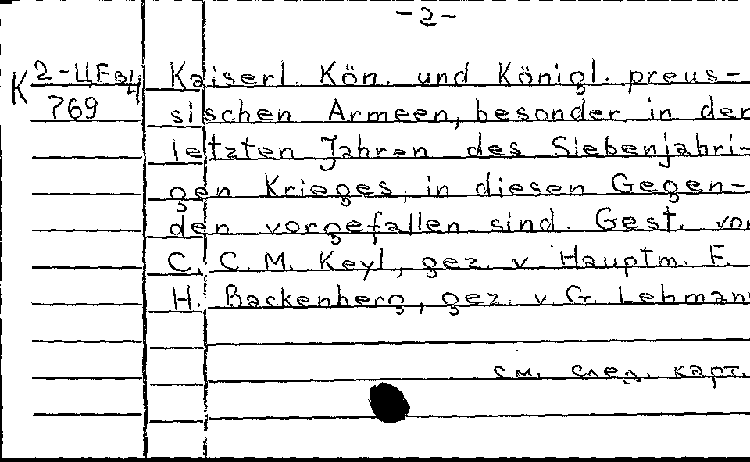 -2-
K 2-ЦFв4/769
Kaiserl. Kön. und Königl. preus-
sischen Armeen, besonder in der
letzten Jahren des Siebenjähri-
gen Krieges in diesen Gegen-
den vorgefallen sind. Gest. von
C. C. M. Keyl, gez. v Hauptm. F.
H. Backenberg, gez. v. G. Lehmann
см. след. карт.